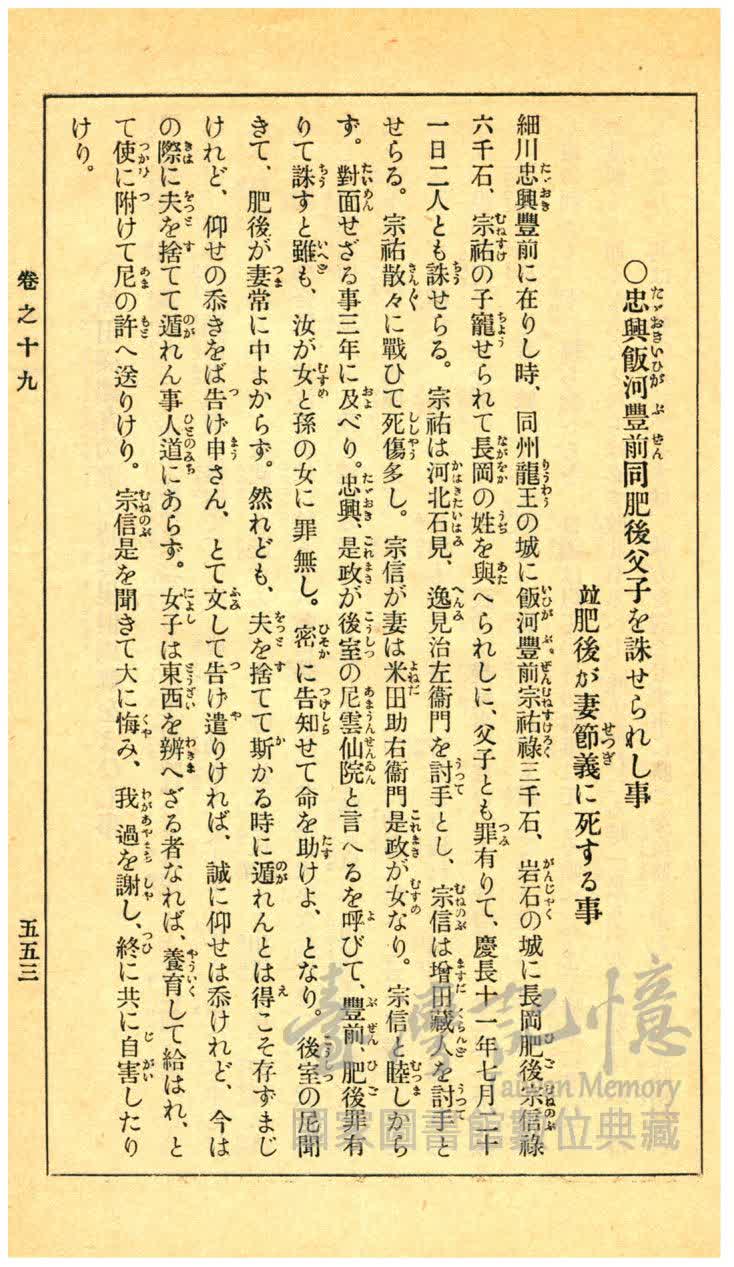 〇忠興飯河豐前同肥後父子を誅せられし事
竝肥後が妻節義に死する事
細川忠興豐前に在りし時、同州龍王の城に飯河豐前宗祐祿三千石、岩石の城に長岡肥後宗信祿
六千石、宗祐の子寵せられて長岡の姓を與へられしに、父子とも罪有りて、慶長十一年七月二十
一日二人とも誅せらる。宗祐は河北石見、逸見治左衞門を討手とし、宗信は增田藏人を討手と
せらる。宗祐散々に戰ひて死傷多し。宗信が妻は米田助右衞門是政が女なり。宗信と睦しから
ず。對面せざる事三年に及べり。忠興、是政が後室の尼雲仙院と言へるを呼びて、豐前、肥後罪有
りて誅すと雖も、汝が女と孫の女に罪無し。密に告知せて命を助けよ、となり。後室の尼聞
きて、肥後が妻常に中よからず。然れども、夫を捨てて斯かる時に遁れんとは得こそ存ずまじ
けれど、仰せの忝きをば告げ申さん、とて文して告げ遣りければ、誠に仰せは忝けれど、今は
の際に夫を捨てて遁れん事人道にあらず。女子は東西を辨へざる者なれば、養育して給はれ、と
て使に附けて尼の許へ送りけり。宗信是を聞きて大に悔み、我過を謝し、終に共に自害したり
けり。
卷之十九
五五三
臺灣記憶
Taiwan Memory
國家圖書館數位典藏